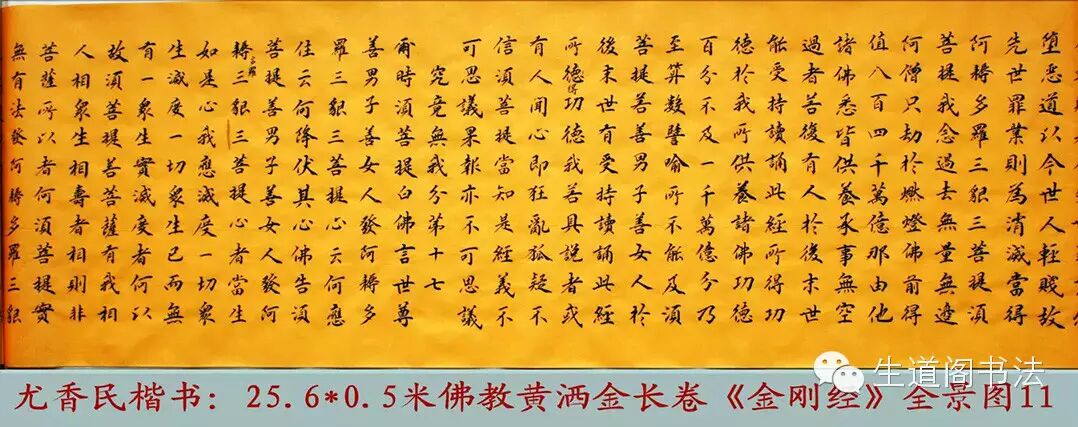 墮惡道以今世人輕賤故
先世罪業則為消滅當得
阿耨多羅三藐三菩提須
菩提我念過去無量無邊
何僧只劫於燃燈佛前得
值八百四千萬億那由他
諸佛悉皆供養承事無空
過者若後有人於後末世
能受持讀誦此經所得功
德於我所供養諸佛功德
百分不及一千萬億分乃
至算數譬喻所不能及須
菩提善善男子善女人於
後末世有受持讀誦此經
所德得功德我若具說者或
有人聞心即狂亂狐疑不
信須菩提當知是經義不
可思議果報亦不可思議
究竟無我分第十七
爾時須菩提白佛言世尊
善男子善女人發阿耨多
羅三藐三菩提心云何應
住云何降伏其心佛告須
菩提善男子善女人發阿
耨多羅三藐三菩提心者當生
如是心我應滅度一切眾
生滅度一切眾生已而無
有一眾生實滅度者何以
故須菩提若菩薩有我相
人相眾生相壽者相則非
菩薩所以者何須菩提實
無有法發阿耨多羅三藐
生道阁书法
尤香民楷书：25.6*0.5米佛教黄洒金长卷《金刚经》全景图11